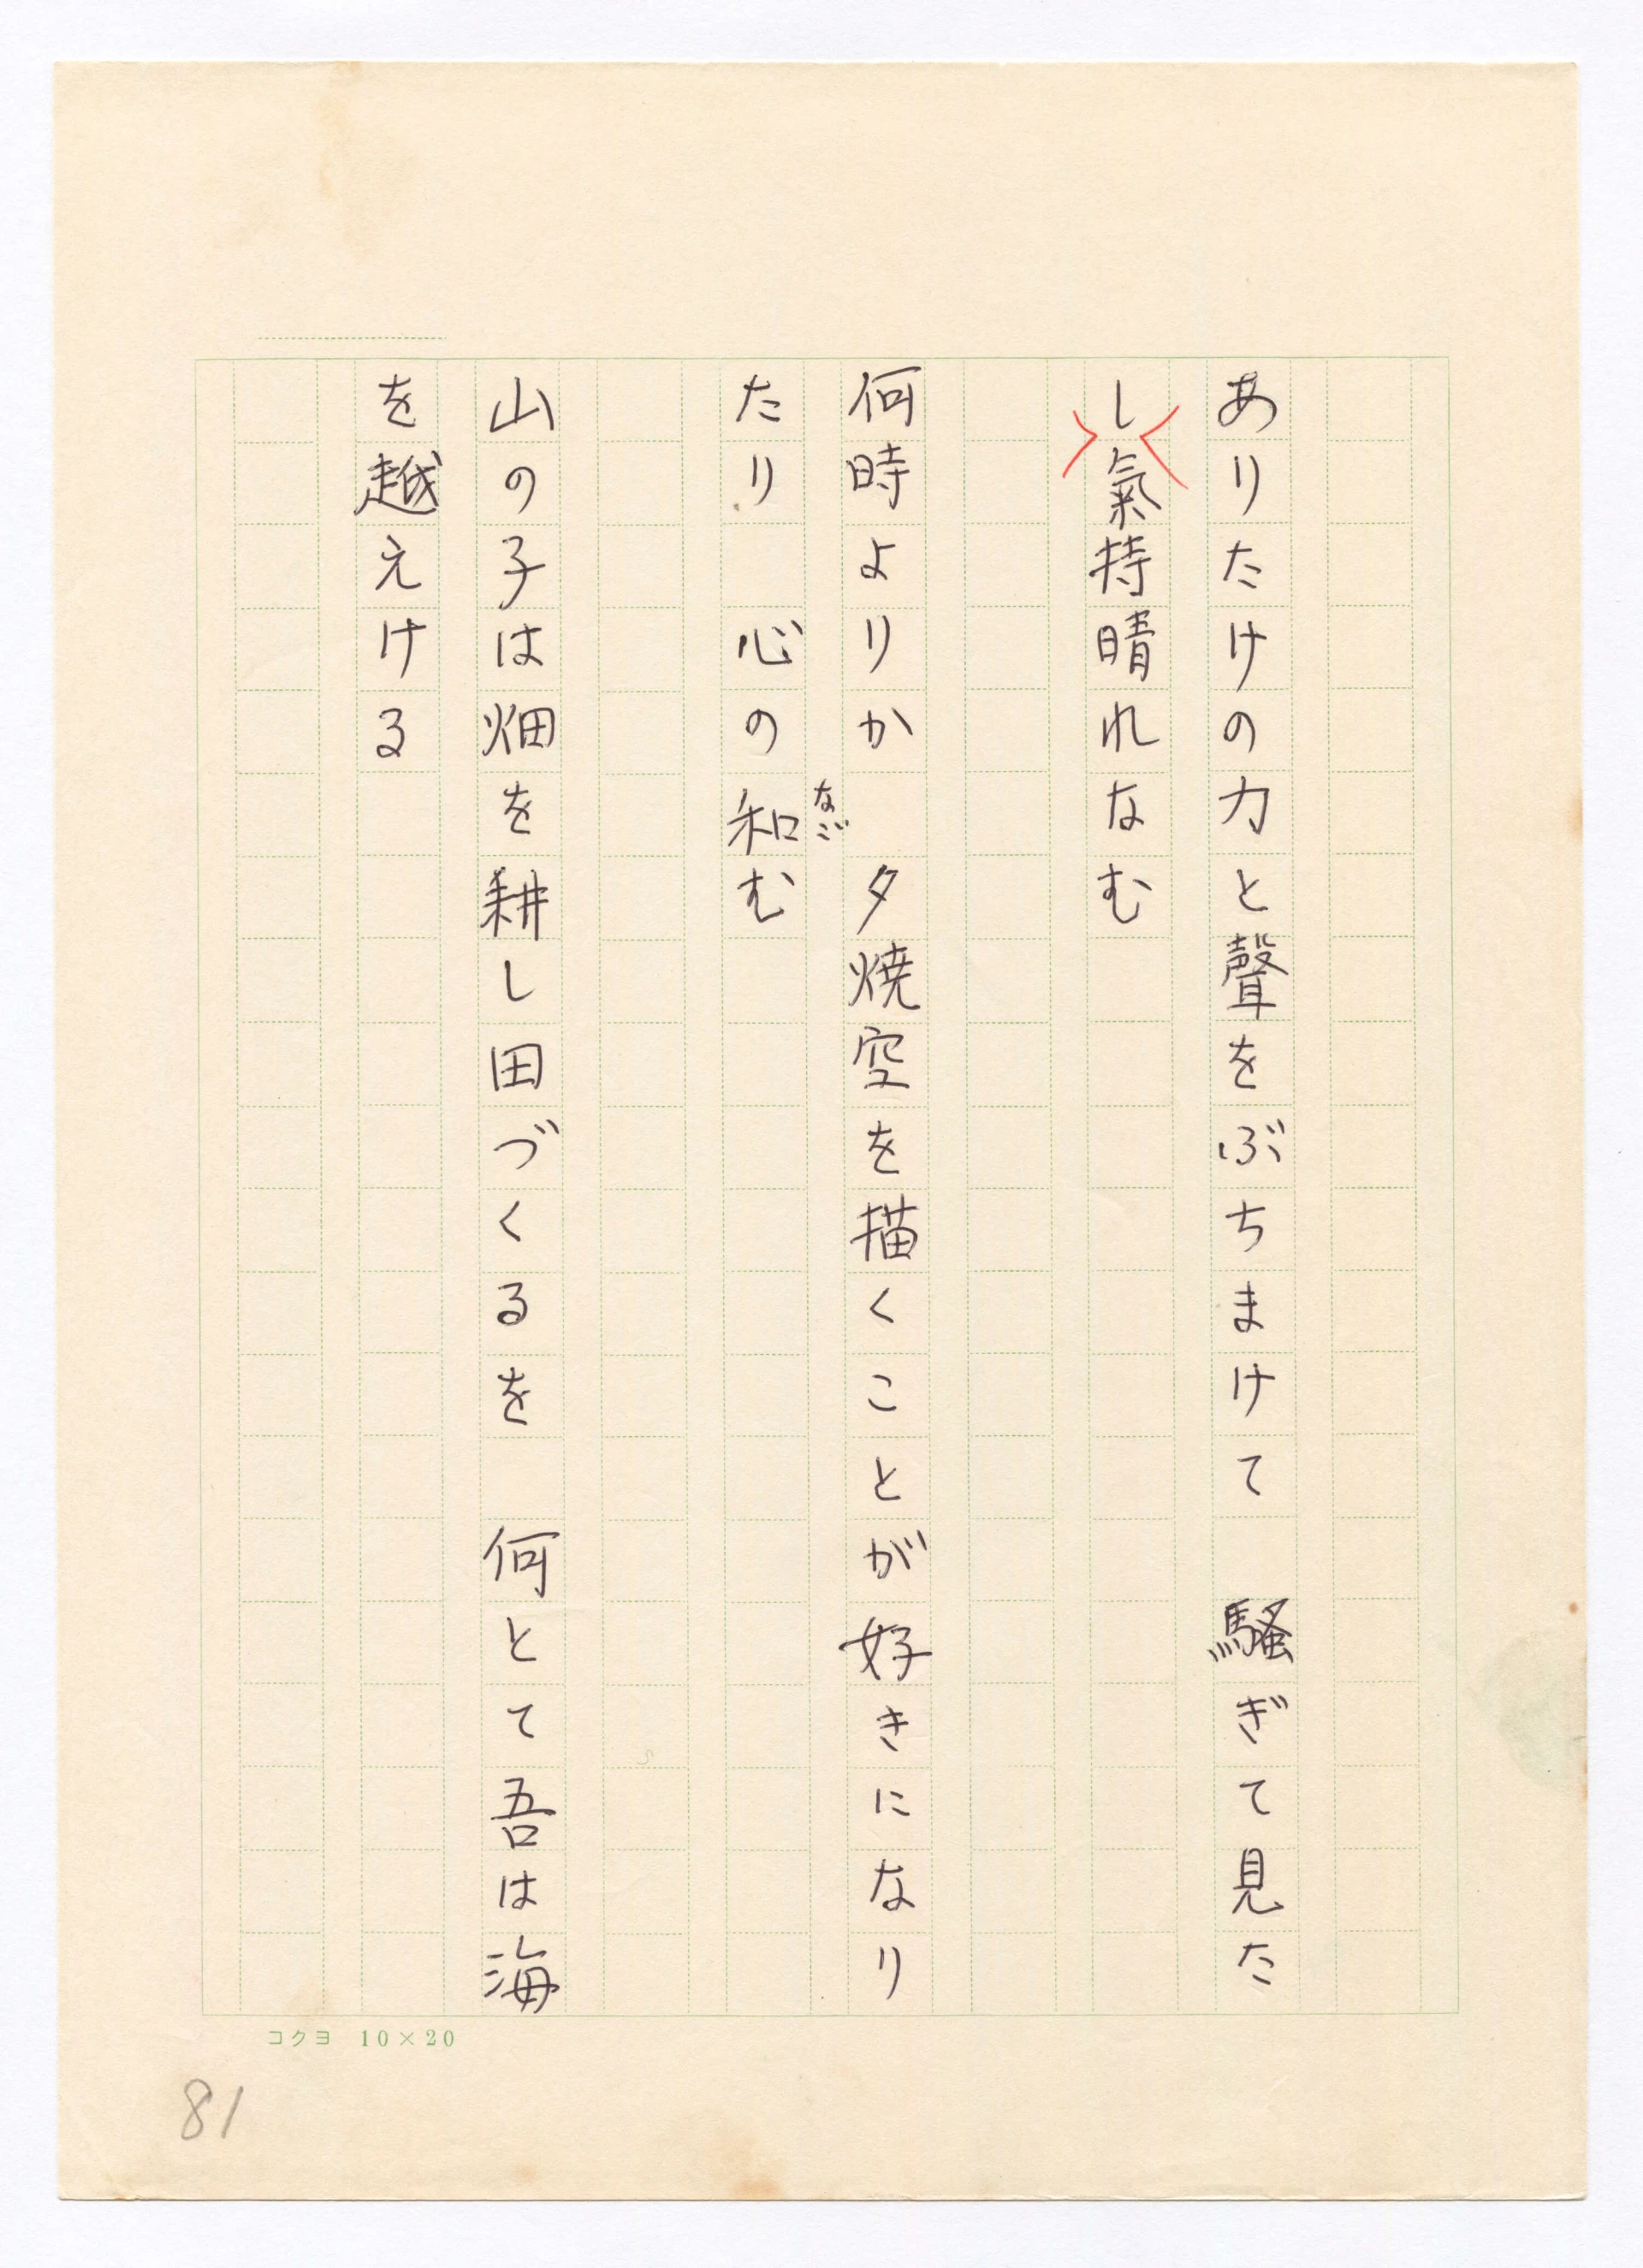 ありたけの力と聲をぶちまけて　騒ぎて見た
し氣持晴れなむ
何時よりか　夕焼空を描くことが好きになり
たり　心の和む
なご
山の子は畑を耕し田づくるを　何とて吾は海
を越えける
コクヨ 10×20
81